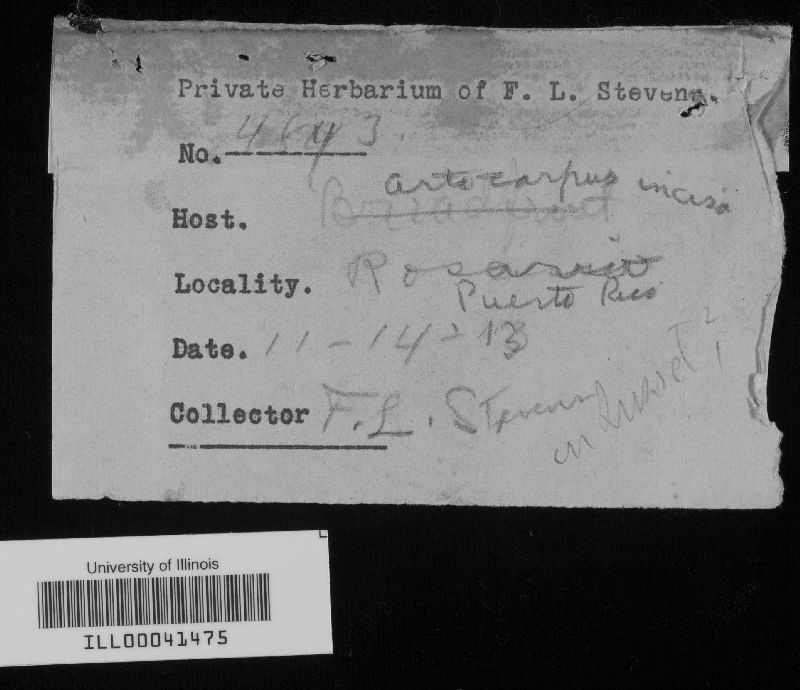 Private Herbarium of F. L. Stevens.
No. 4643.
Artocarpus incisa
Host. Breadfruit
Locality. Rosario
Puerto Rico
Date. 11-14-13
Collector F. L. Stevens
in
University of Illinois
ILL00041475